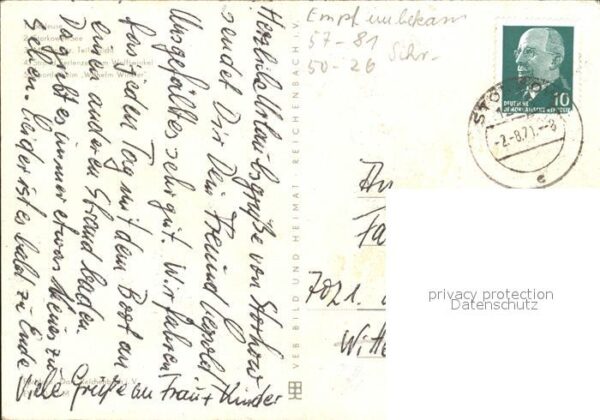 Herzliche Urlaubsgrüße von Storkow
sendet Dir Dein Freund
Ungefältes sehr gut. Wir fahren
fast jeden Tag mit dem Boot an
einen anderen Strand baden
Da gibt es immer etwas Neues zu
sehen. Leider ist es bald zu Ende
Viele Grüße an Frau + Kinder
VEB BILD UND HEIMAT · REICHENBACH i. V.
Empf. unbekannt
57-81
50-26 Schr.
DEUTSCHE
DEMOKRATISCHE REPUBLIK
10
-2.-8.71.-8
e
An
Fa
7021
Witte
privacy protection
Datenschutz